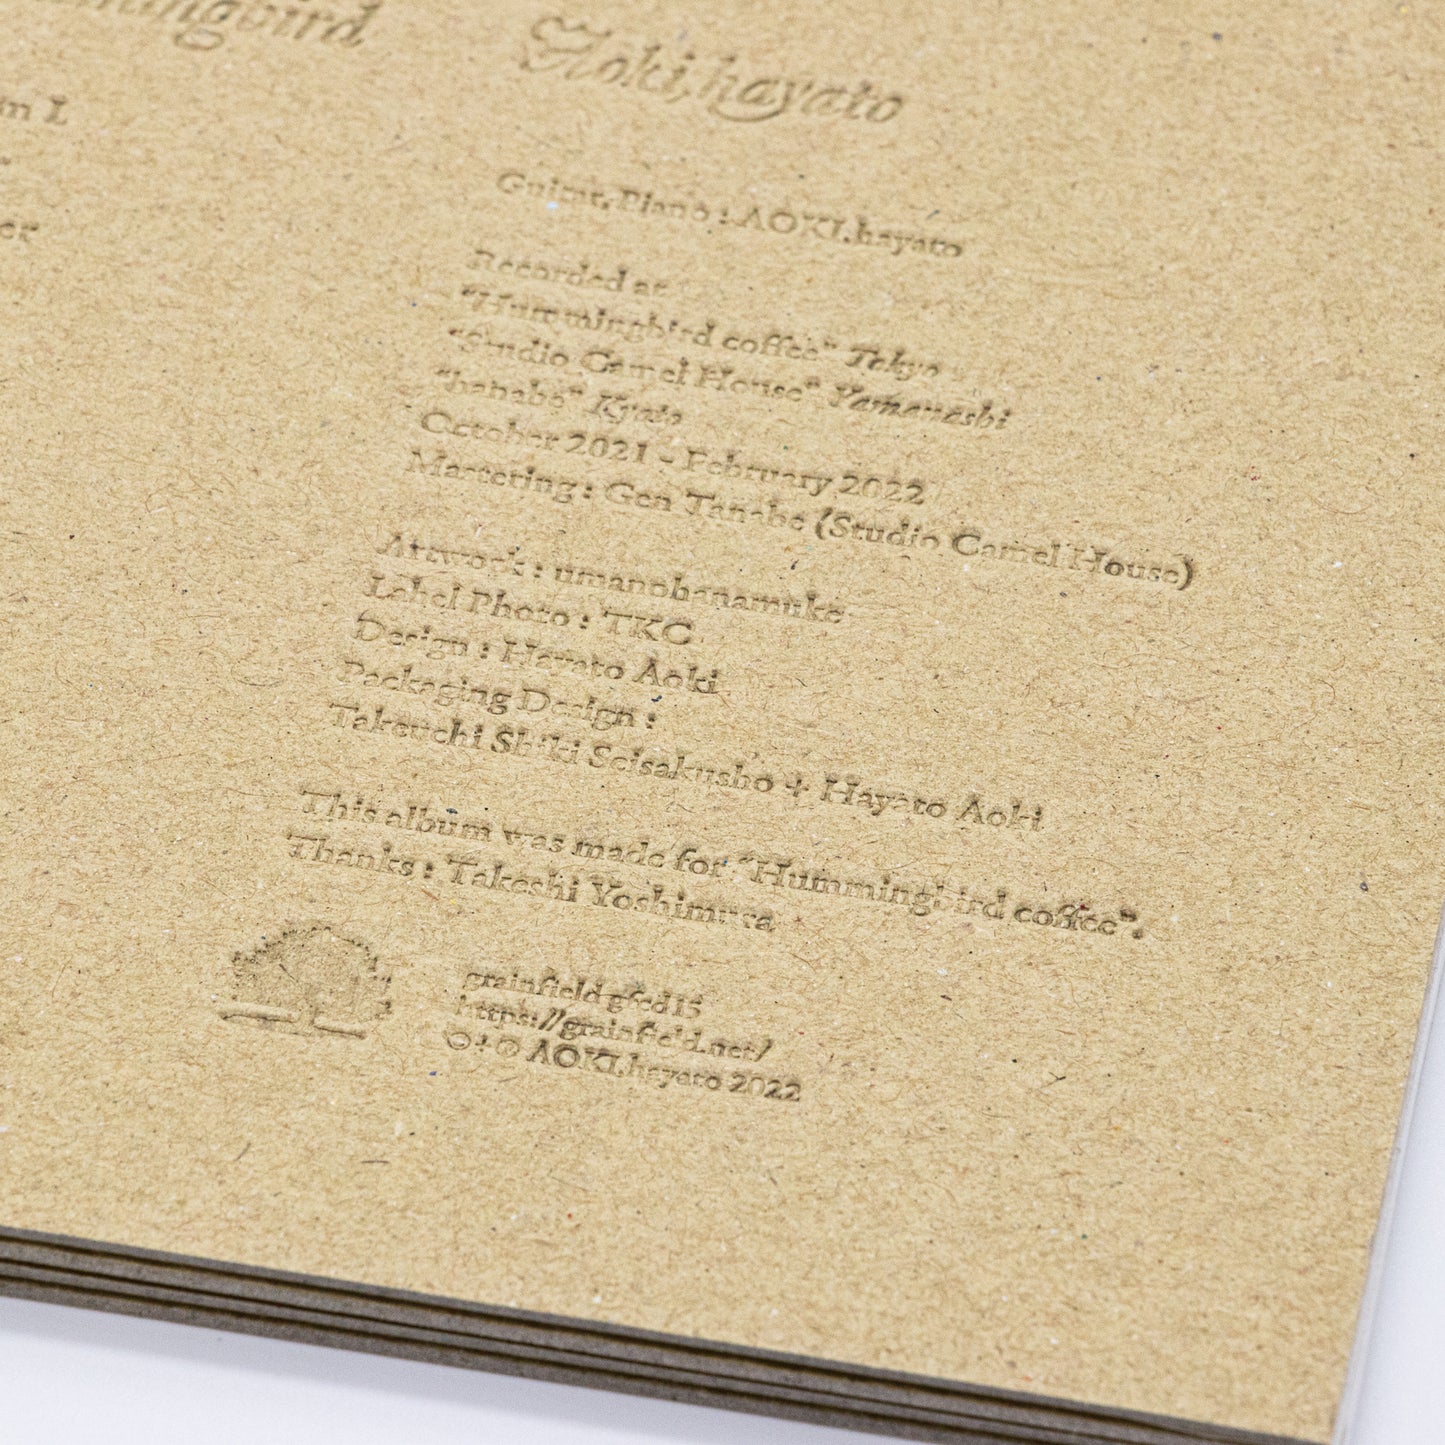 mingbird
Aoki,hayato
m I
er
Guitar, Piano : AOKI,hayato
Recorded at
"Hummingbird coffee" Tokyo
"Studio Camel House" Yamanashi
"hanabe" Kyoto
October 2021 - February 2022
Mastering : Gen Tanabe (Studio Camel House)
Artwork : umanohanamuke
Label Photo : TKC
Design : Hayato Aoki
Packaging Design :
Takeuchi Shiki Seisakusho + Hayato Aoki
This album was made for "Hummingbird coffee".
Thanks : Takeshi Yoshimura
grainfield gfcd15
https://grainfield.net/
©+℗ AOKI,hayato 2022